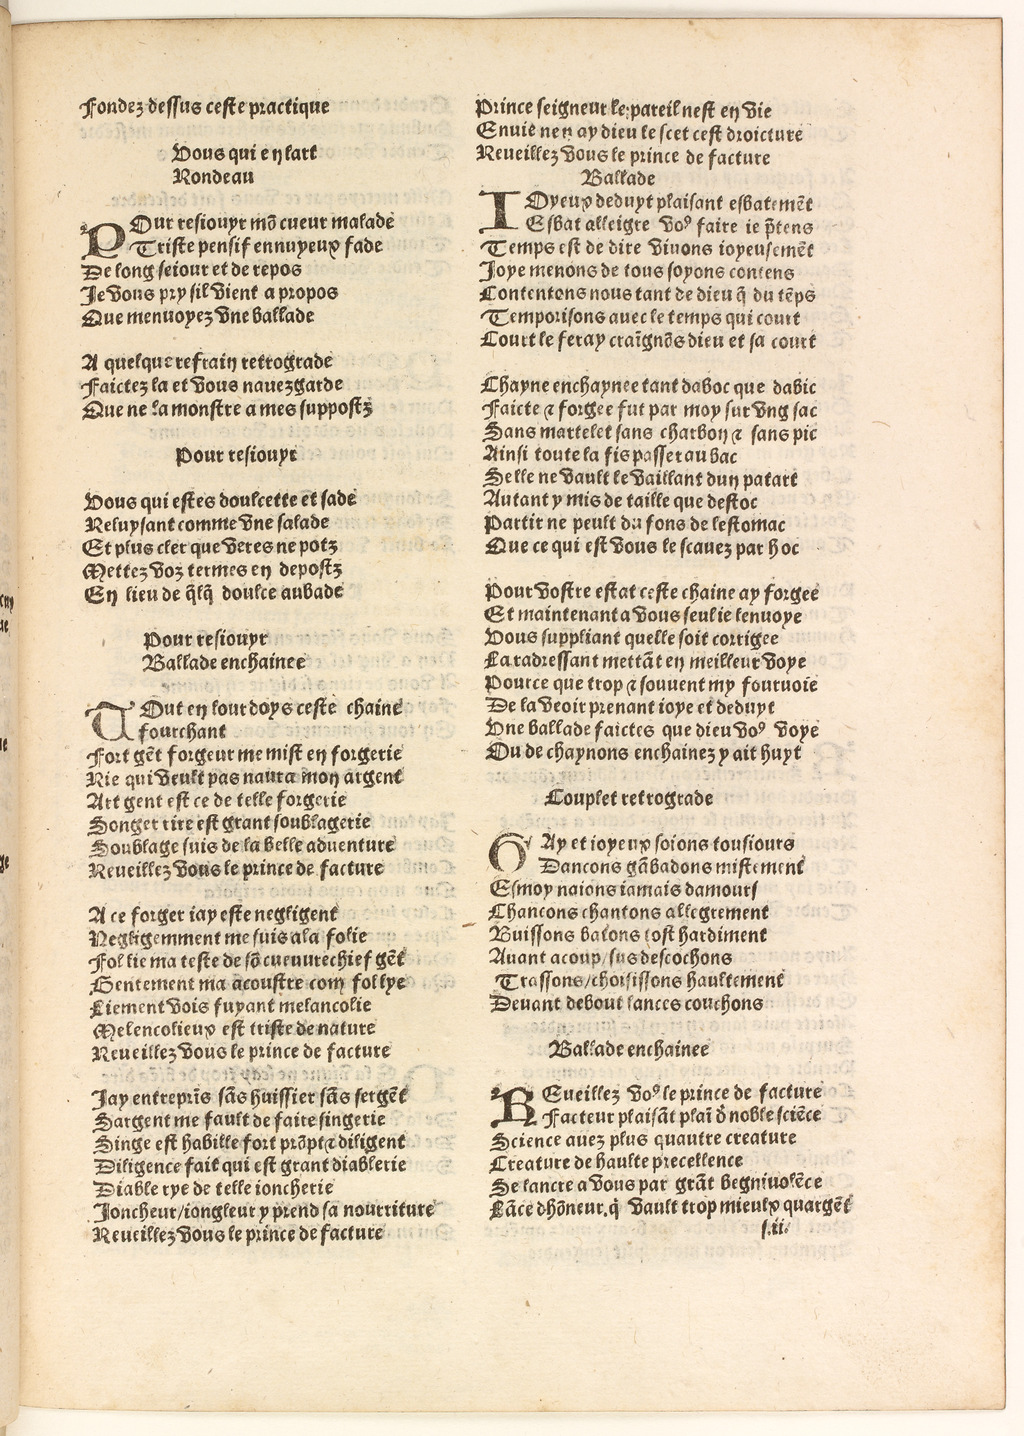 Fondez dessus ceste practique
Vous qui en lart
Rondeau
POur resiouyr mõ cueur malade
Triste pensif ennuyeux fade
De long seiour et de repos
Je vous pry sil vient a propos
Que menuoyez vne ballade
A quelque refrain retrograde
Faictez la et vous nauez garde
Que ne la monstre a mes suppostz
Pour resiouyr
Vous qui estes doulcette et sade
Reluysant comme vne salade
Et plus cler que veres ne potz
Mettez voz termes en depostz
En lieu de q̃lq̃ doulce aubade
Pour resiouyr
Ballade enchainee
TOut en lourdoys ceste chaine
fourchant
Fort gẽt forgeur me mist en forgerie
Rie qui veult pas naura mon argent
Art gent est ce de telle forgerie
Songer rire est grant soublagerie
Soublage suis de la belle aduenture
Reueillez vous le prince de facture
A ce forger iay este negligent
Negligemment me suis a la folie
Follie ma teste de sõ cueuurechief gẽt
Gentement ma acoustre com follye
Liement vois fuyant melancolie
Melencolieux est triste de nature
Reueillez vous le prince de facture
Jay entrepris̃ sãs huissier sãs sergẽt
Sargent me fault de faire singerie
Singe est habille fort prõpt ⁊ diligent
Diligence fait qui est grant diablerie
Diable rye de telle ioncherie
Joncheur/iongleur y prend sa nourriture
Reueillez vous le prince de facture
Prince seigneur le pareil nest en vie
Enuie nen ay dieu le scet cest droicture
Reueillez vous le prince de facture
Ballade
IOyeux deduyt plaisant esbatemẽt
Esbat alleigre voꝰ faire ie p̃tens
Temps est de dire viuons ioyeusemẽt
Joye menons de tous soyons contens
Contentons nous tant de dieu q̃ du tẽps
Temporisons auec le temps qui court
Court le feray craĩgnõs dieu et sa court
Chayne enchaynee tant daboc que dabic
Faicte ⁊ forgee fut par moy sur vng sac
Sans martelet sans charbon ⁊ sans pic
Ainsi toute la fis passer au bac
Selle ne vault le vaillant dun patart
Autant y mis de taille que destoc
Partir ne peult du fons de lestomac
Que ce qui est vous le scauez par hoc
Pour vostre estat ceste chaine ay forgee
Et maintenant a vous seul ie lenuoye
Vous suppliant quelle soit corrigee
La radressant mettãt en meilleur voye
Pource que trop ⁊ souuent my fouruoie
De la veoir prenant ioye et deduyt
Vne ballade faictes que dieu voꝰ voye
Ou de chaynons enchainez y ait huyt
Couplet retrograde
GAy et ioyeux soions tousiours
Dancons gãbadons mistement
Esmoy naions iamais damours
Chancons chantons allegrement
Buissons batons tost hardiment
Auant acoup/sus descochons
Trassons/choisissons haultement
Deuant debout lances couchons
Ballade enchainee
REueillez voꝰ le prince de facture
Facteur plaisãt plaĩ d̃ noble sciẽce
Science auez plus quautre creature
Creature de haulte precellence
Se lancre a vous par grãt begniuolẽce
Lãce dhõneur.q̃ vault trop mieulx quargẽt
s.ii.